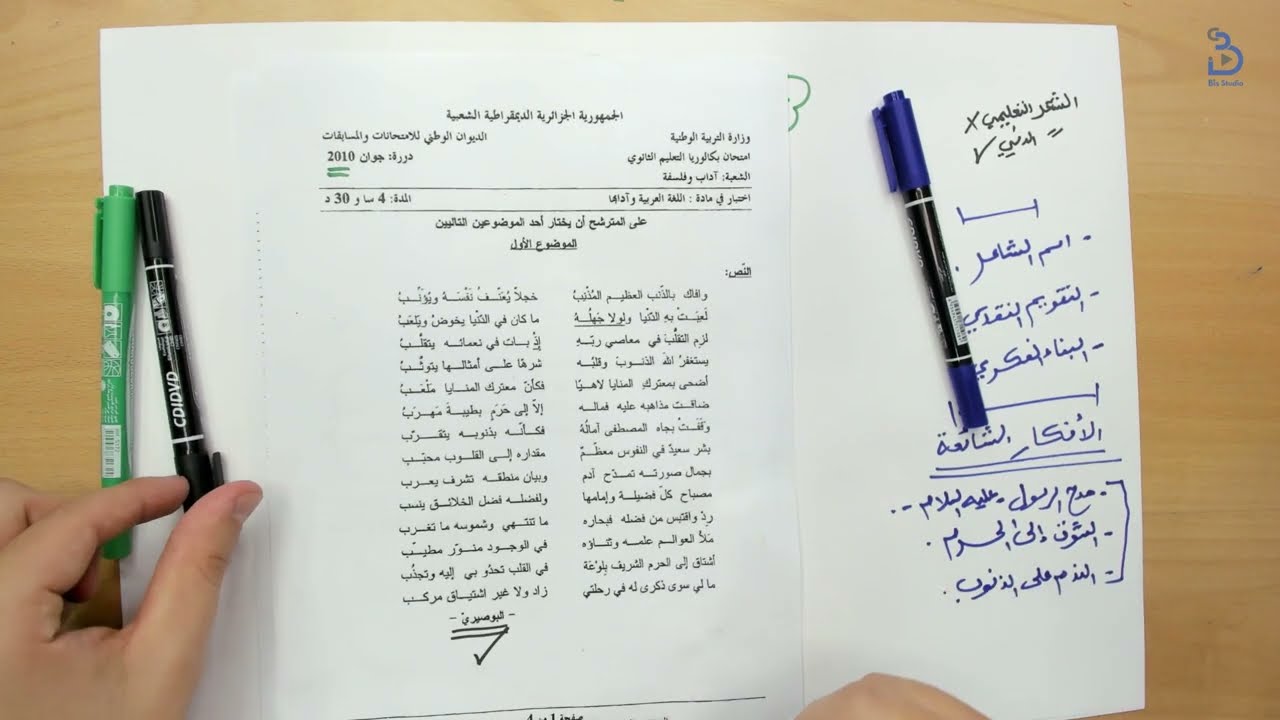 الجمهورية الجزائرية الديمقراطية الشعبية
وزارة التربية الوطنية الديوان الوطني للامتحانات والمسابقات
امتحان بكالوريا التعليم الثانوي دورة: جوان 2010
الشعبة: آداب وفلسفة
اختبار في مادة : اللغة العربية وآدابها المدة: 4 سا و 30 د
على المترشح أن يختار أحد الموضوعين التاليين
الموضوع الأول
النّص:
وافاك بالذّنب العظيم المُذْنِبُ خجلاً يُعَنّفُ نَفْسَهُ ويُؤَنِّبُ
لَعِبَتْ بهِ الدّنْيا ولولا جَهلُهُ ما كان في الدّنْيا يخوضُ ويَلْعَبُ
لزم التقلُّبَ في معاصي ربّهِ إذْ بات في نعمائه يتقلَّبُ
يستغفرُ اللهَ الذنوبَ وقلبُه شرهًا على أمثالها يتوثَّبُ
أضحى بمعتركِ المنايا لاهيًا فكأنّ معترك المنايا مَلْعَبُ
ضاقت مذاهبه عليه فماله إلاّ إلى حَرَمٍ بطيبةَ مَهربُ
وَقَفَتْ بجاه المصطفى آمالُهُ فكأنّه بذنوبه يتقرّب
بشر سعيدٌ في النفوس معظّمٌ مقداره إلى القلوب محبّب
بجمال صورته تمدّح آدم وبيان منطقه تشرف يعرب
مصباح كلّ فضيلة وإمامها ولفضله فضل الخلائق ينسب
رِدْ واقتبس من فضله فبحاره ما تنتهي وشموسه ما تغرب
مَلأ العوالم علمه وثناؤه في الوجود منوّر مطيّب
أشتاق إلى الحرم الشريف بلوْعَة في القلب تحدُو بي إليه وتجذُب
ما لي سوى ذكرى له في رحلتي زاد ولا غير اشتياق مركب
- البوصيريّ -
صفحة 1 من 4
الشعر التعليمي ×
= الديني ✓
- اسم الشاعر .
- التقويم النقدي
- البناء الفكري
الأفكار الشائعة
- مدح الرسول - عليه السلام - .
- الشوق إلى الحرم .
- الندم على الذنوب .
Bls Studio